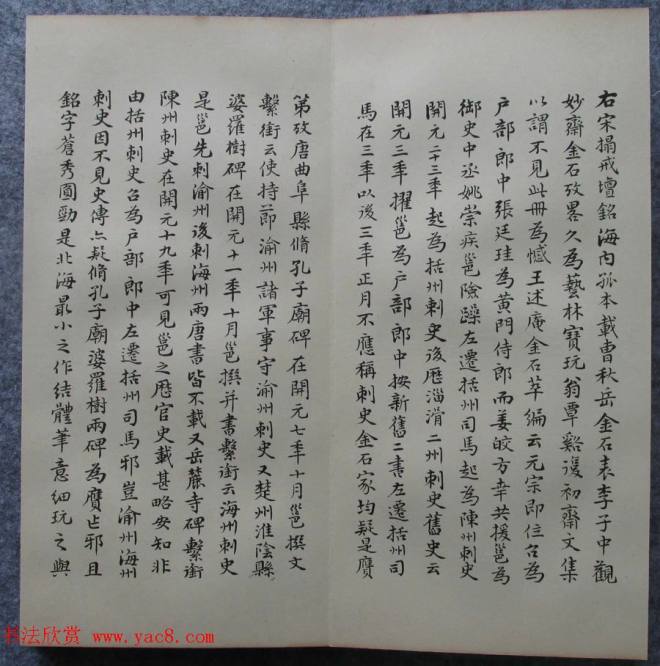 右宋搨戒壇銘海内孤本載曹秋岳金石表李子中觀
妙齋金石攷畧久為藝林寶玩翁覃谿復初齋文集
以謂不見此冊為憾王述庵金石萃編云元宗即位召為
戶部郎中張廷珪為黃門侍郎而姜皎方幸共援邕為
御史中丞姚崇疾邕險躁左遷括州司馬起為陳州刺史
開元二十三季起為括州刺史後歷淄滑二州刺史舊史云
開元三季擢邕為戶部郎中按新舊二書左遷括州司
馬在三季以後三季正月不應稱刺史金石家均疑是贋
第攷唐曲阜縣脩孔子廟碑在開元七季十月邕撰文
繫銜云使持節渝州諸軍事守渝州刺史又楚州淮陰縣
婆羅樹碑在開元十一季十月邕撰并書繫銜云海州刺史
是邕先刺渝州後刺海州兩唐書皆不載又岳麓寺碑繫銜
陳州刺史在開元十九季可見邕之歷官史載甚略安知非
由括州刺史召為戶部郎中左遷括州司馬邪豈渝州海州
刺史因不見史傳亦疑脩孔子廟婆羅樹兩碑為贋作邪且
銘字蒼秀圓勁是北海最小之作結體筆意細玩之與
书法欣赏 www.yac8.com